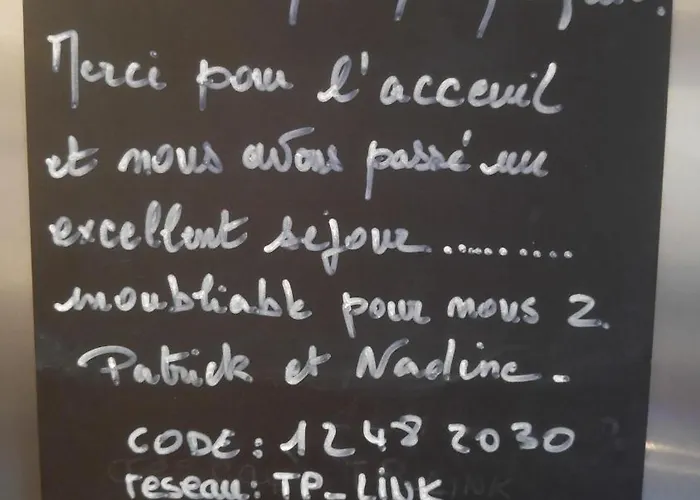 Merci pour l'acceuil
et nous avons passé un
excellent séjour..........
inoubliable pour nous 2.
Patrick et Nadine.
CODE: 1248 2030
reseau: TP_LINK